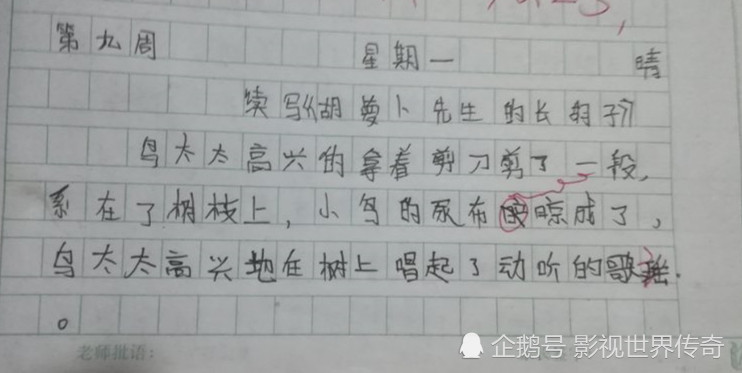 第九周 星期一 晴
续写《胡萝卜先生的长胡子》
鸟太太高兴的拿着剪刀剪了一段，
系在了树枝上，小鸟的尿布晾成了，
鸟太太高兴地在树上唱起了动听的歌谣
。
老师批语：
企鹅号 影视世界传奇